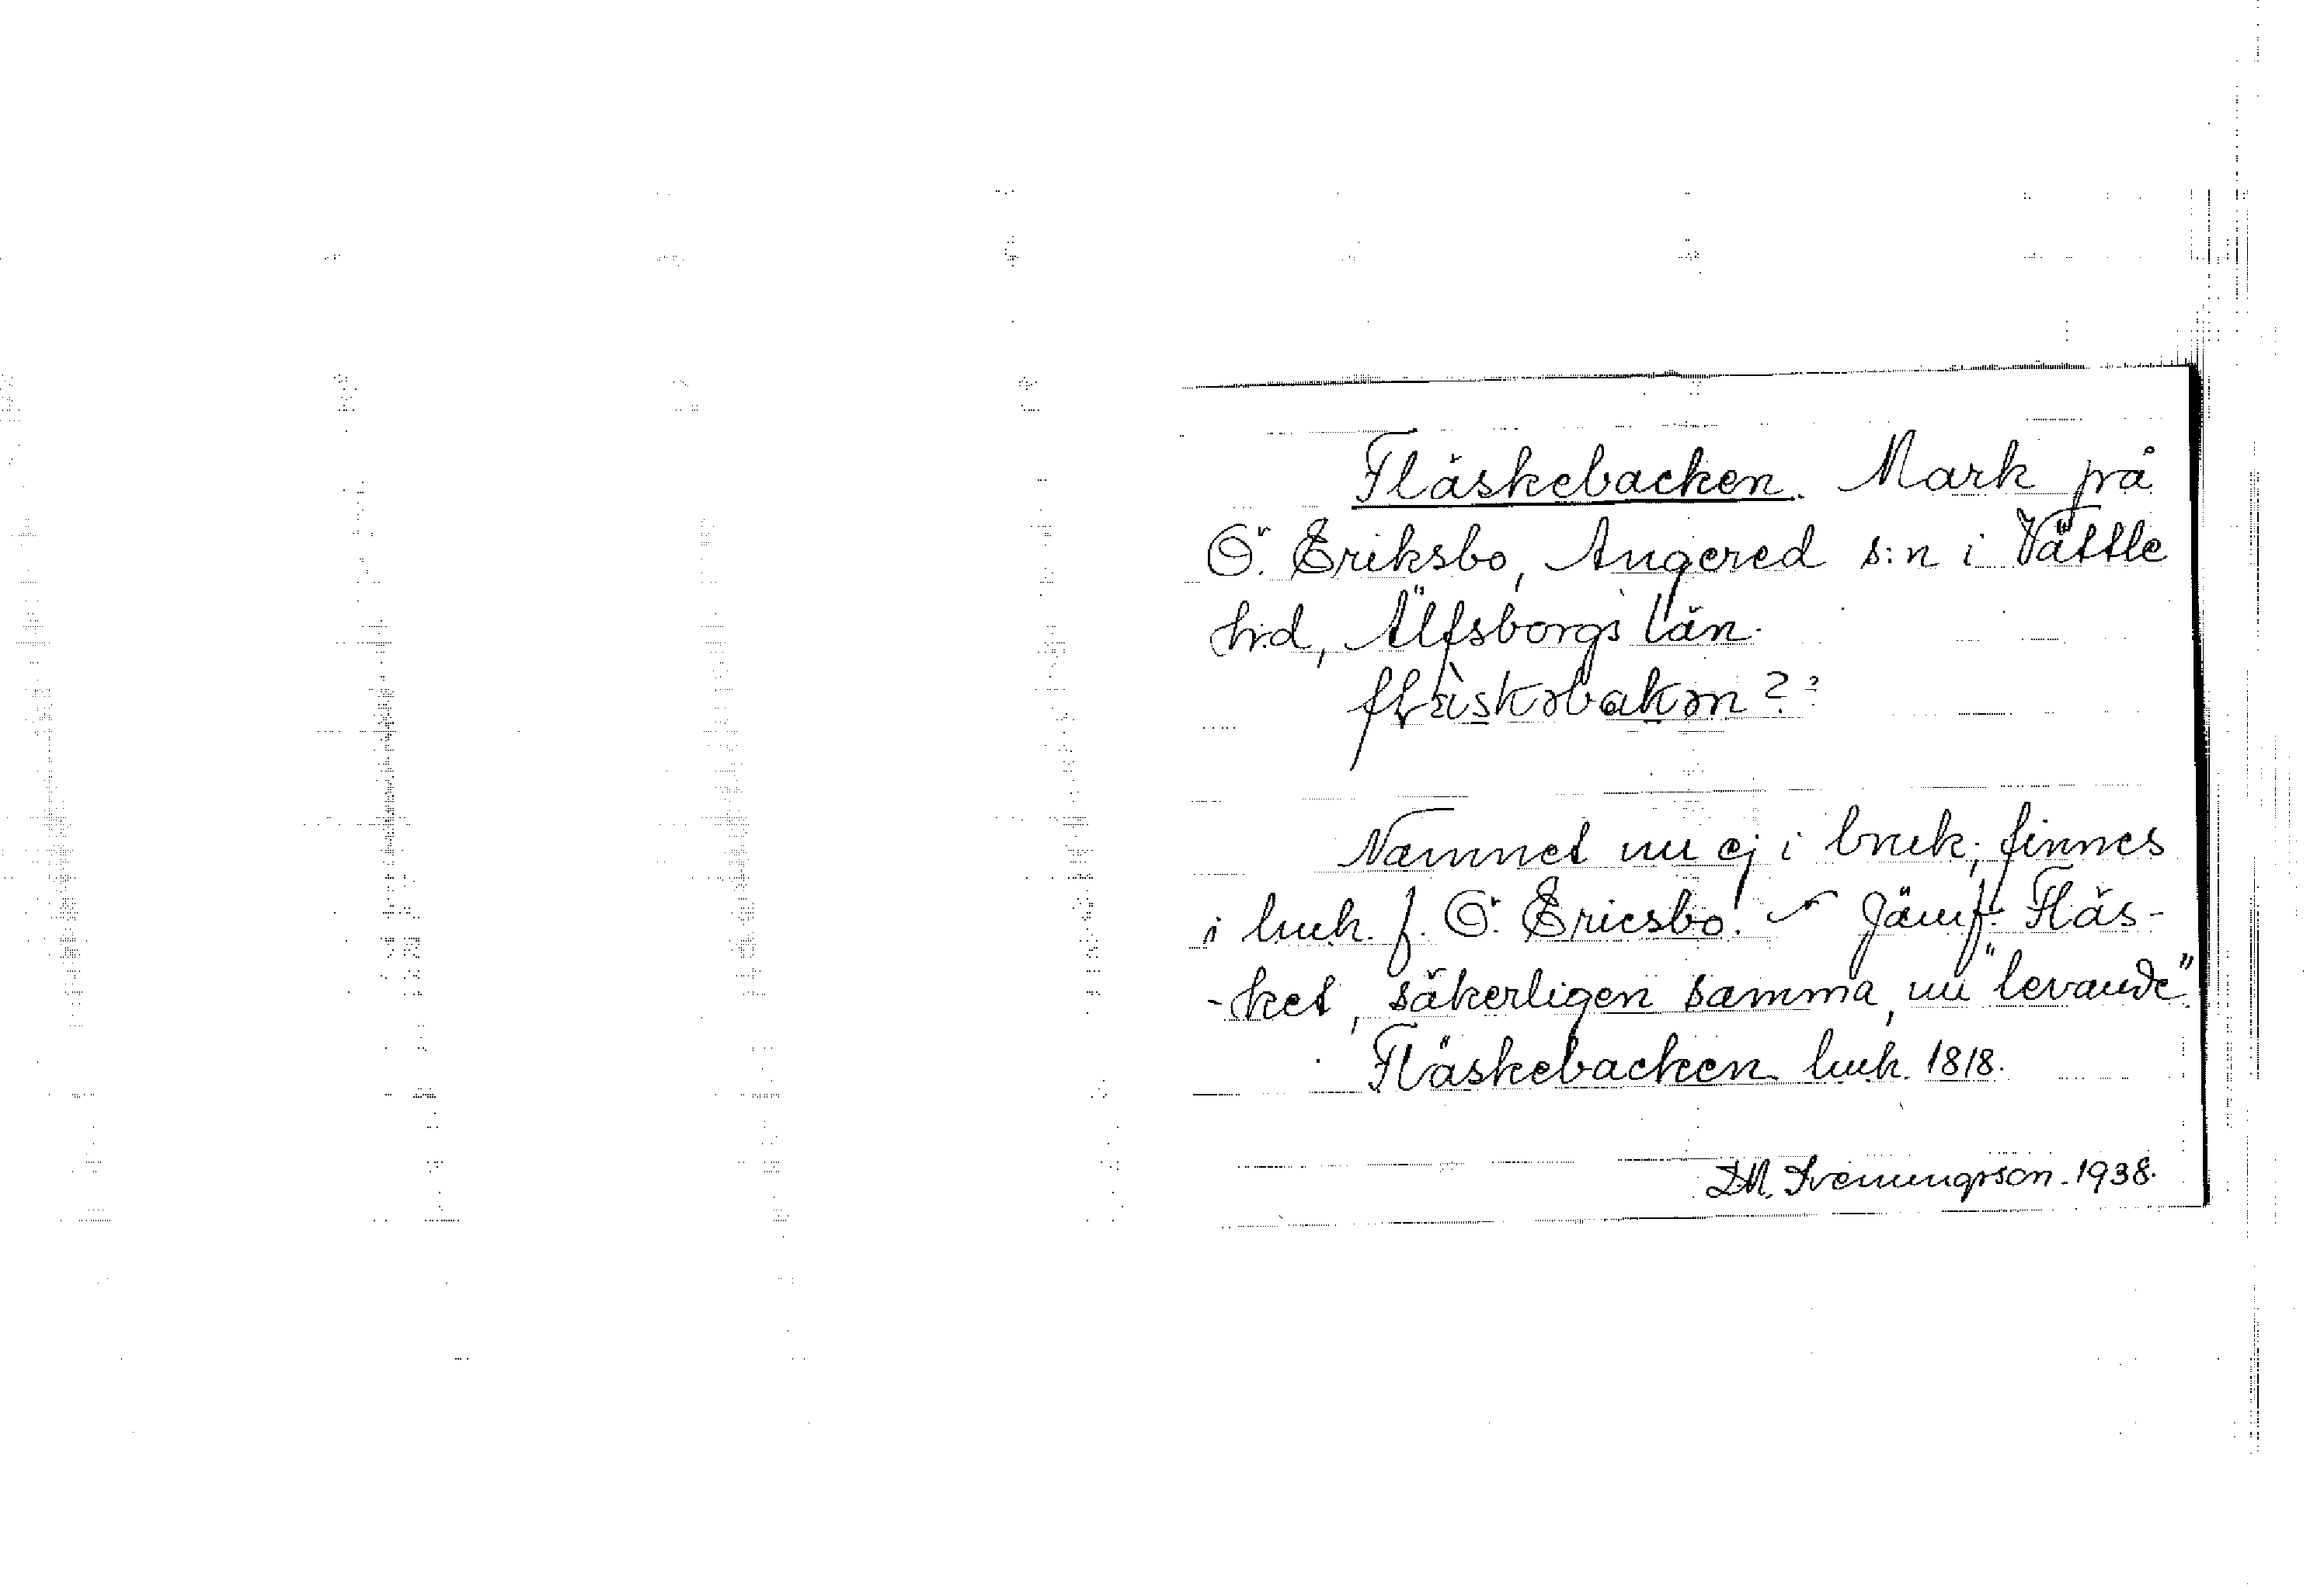 Fläskebacken. Mark på
Ö. Eriksbo, Angered s:n i Vättle
hd, Älfsborgs län.
flæ̀skəbakən??
Namnet nu ej i bruk; finnes
i luk. f. Ö. Ericsbo. Jämf. Fläs-
-ket, säkerligen samma, nu "levande".
Fläskebacken luk. 1818.
D.M. Svenungsson. 1938.